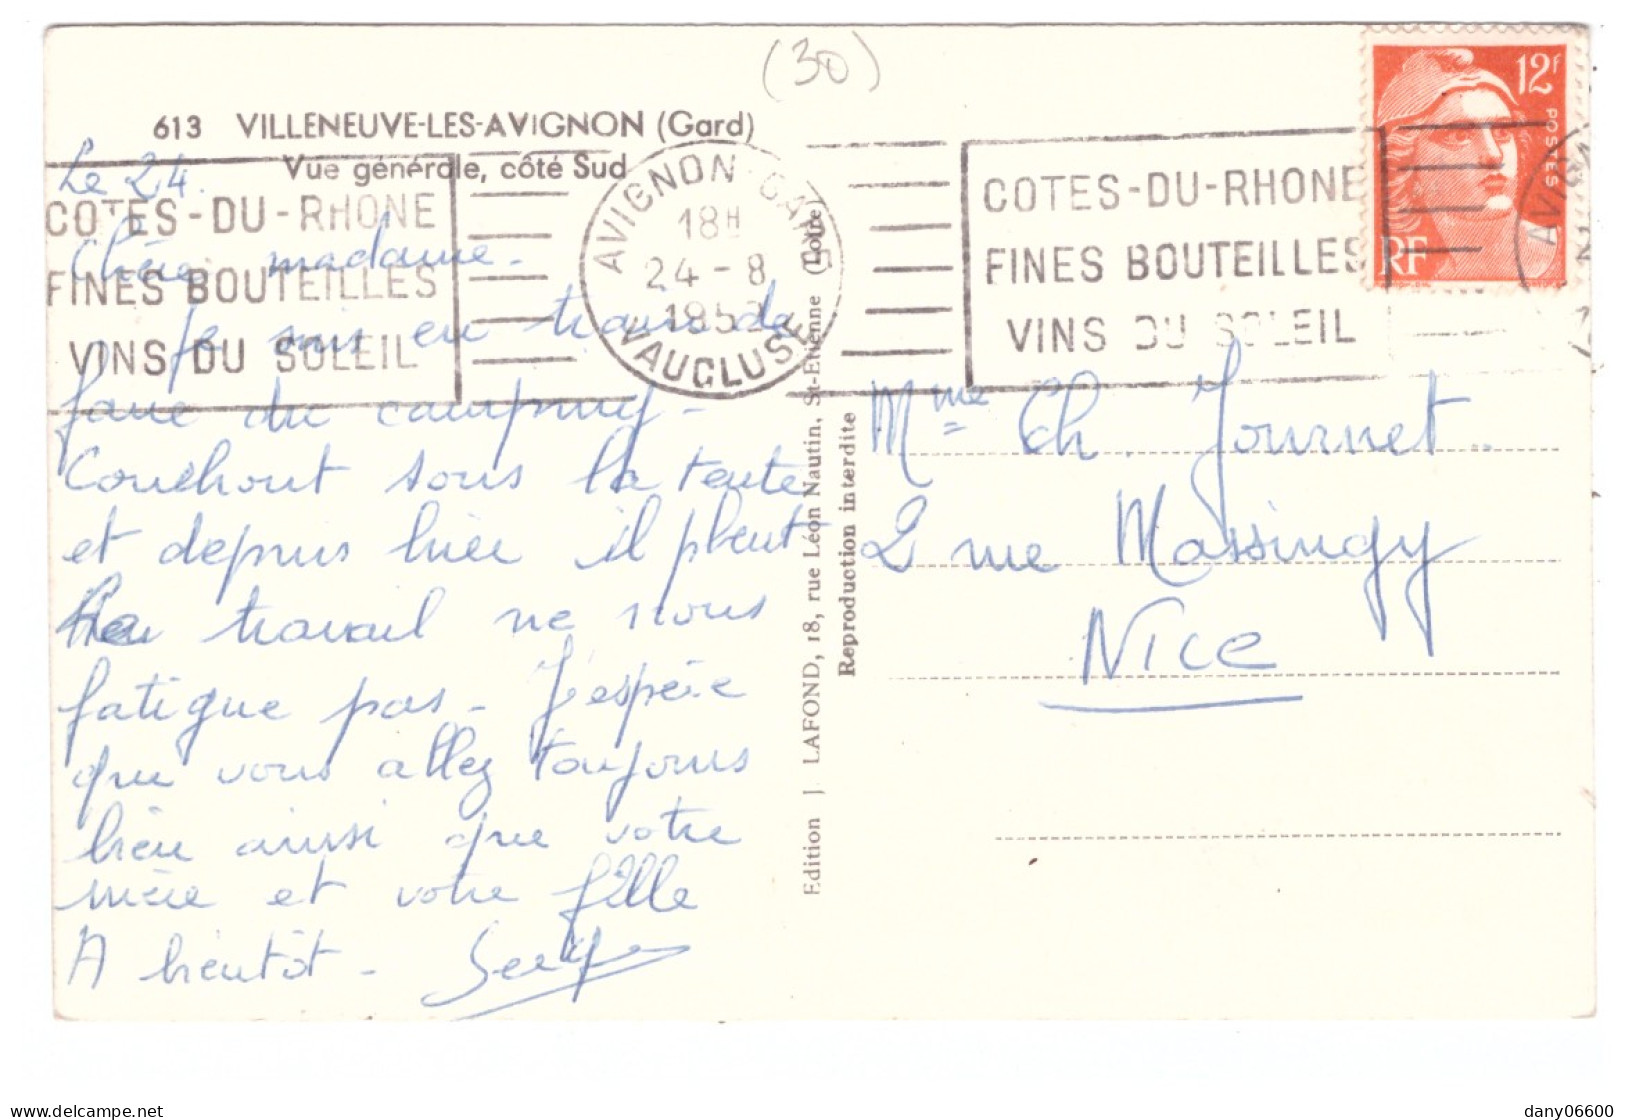 (30)
613 VILLENEUVE-LES-AVIGNON (Gard)
Vue générale, côté Sud
COTES-DU-RHONE
FINES BOUTEILLES
VINS DU SOLEIL
AVIGNON GARE
18H
24-8
1952
VAUCLUSE
COTES-DU-RHONE
FINES BOUTEILLES
VINS DU SOLEIL
12F
POSTES
RF
Le 24.
Chère madame.
Je suis en train de
faire du camping -
Couchant sous la tente
et depuis hier il pleut
travail ne nous
fatigue pas - J'espère
que vous allez toujours
bien ainsi que votre
mère et votre fille
A bientôt - Serge
Edition J. LAFOND, 18, rue Léon Nautin, St-Etienne (Loire)
Reproduction interdite
Mme Ch. Journet
2 rue Massingy
NICE
dany06600